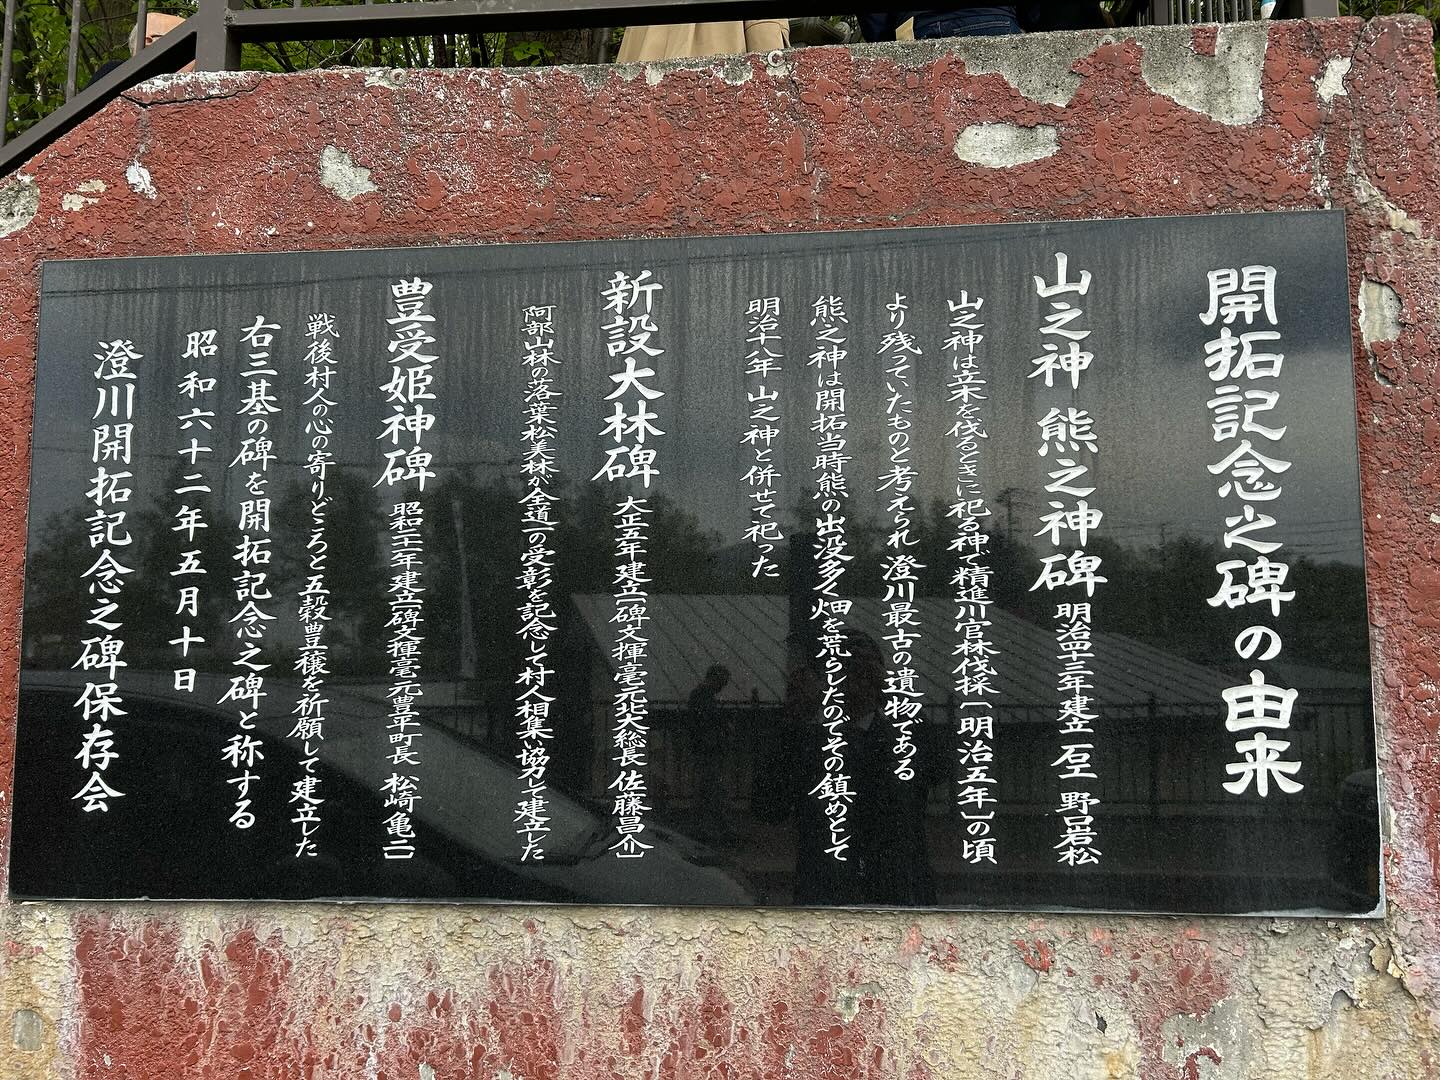 開拓記念之碑の由来
山之神 熊之神碑 明治四十三年建立 石工 野呂岩松
山之神は立木を伐るときに祀る神で精進川官林伐採〔明治五年〕の頃
より残っていたものと考えられ 澄川最古の遺物である
熊之神は開拓当時熊の出没多く畑を荒らしたのでその鎮めとして
明治十八年 山之神と併せて祀った
新設大林碑 大正五年建立〔碑文揮毫元北大総長 佐藤昌介〕
阿部山林の落葉松美林が全道一の受彰を記念して村人相集い協力して建立した
豊受姫神碑 昭和二十一年建立〔碑文揮毫元豊平町長 松崎亀二〕
戦後村人の心の寄りどころと五穀豊穣を祈願して建立した
右三基の碑を開拓記念之碑と称する
昭和六十二年五月十日
澄川開拓記念之碑保存会